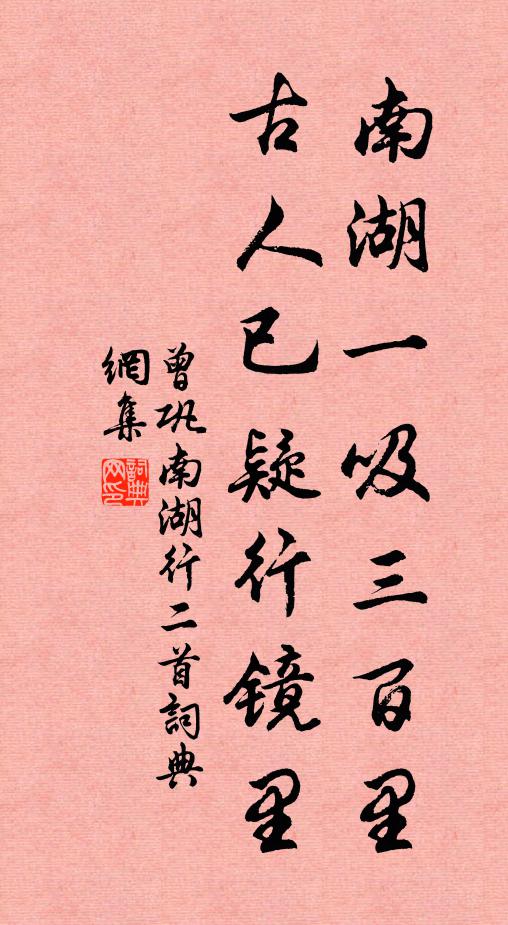 南湖一吸三百里
古人已疑行镜里
曾巩南湖行二首詞典
網集
詞典
网印